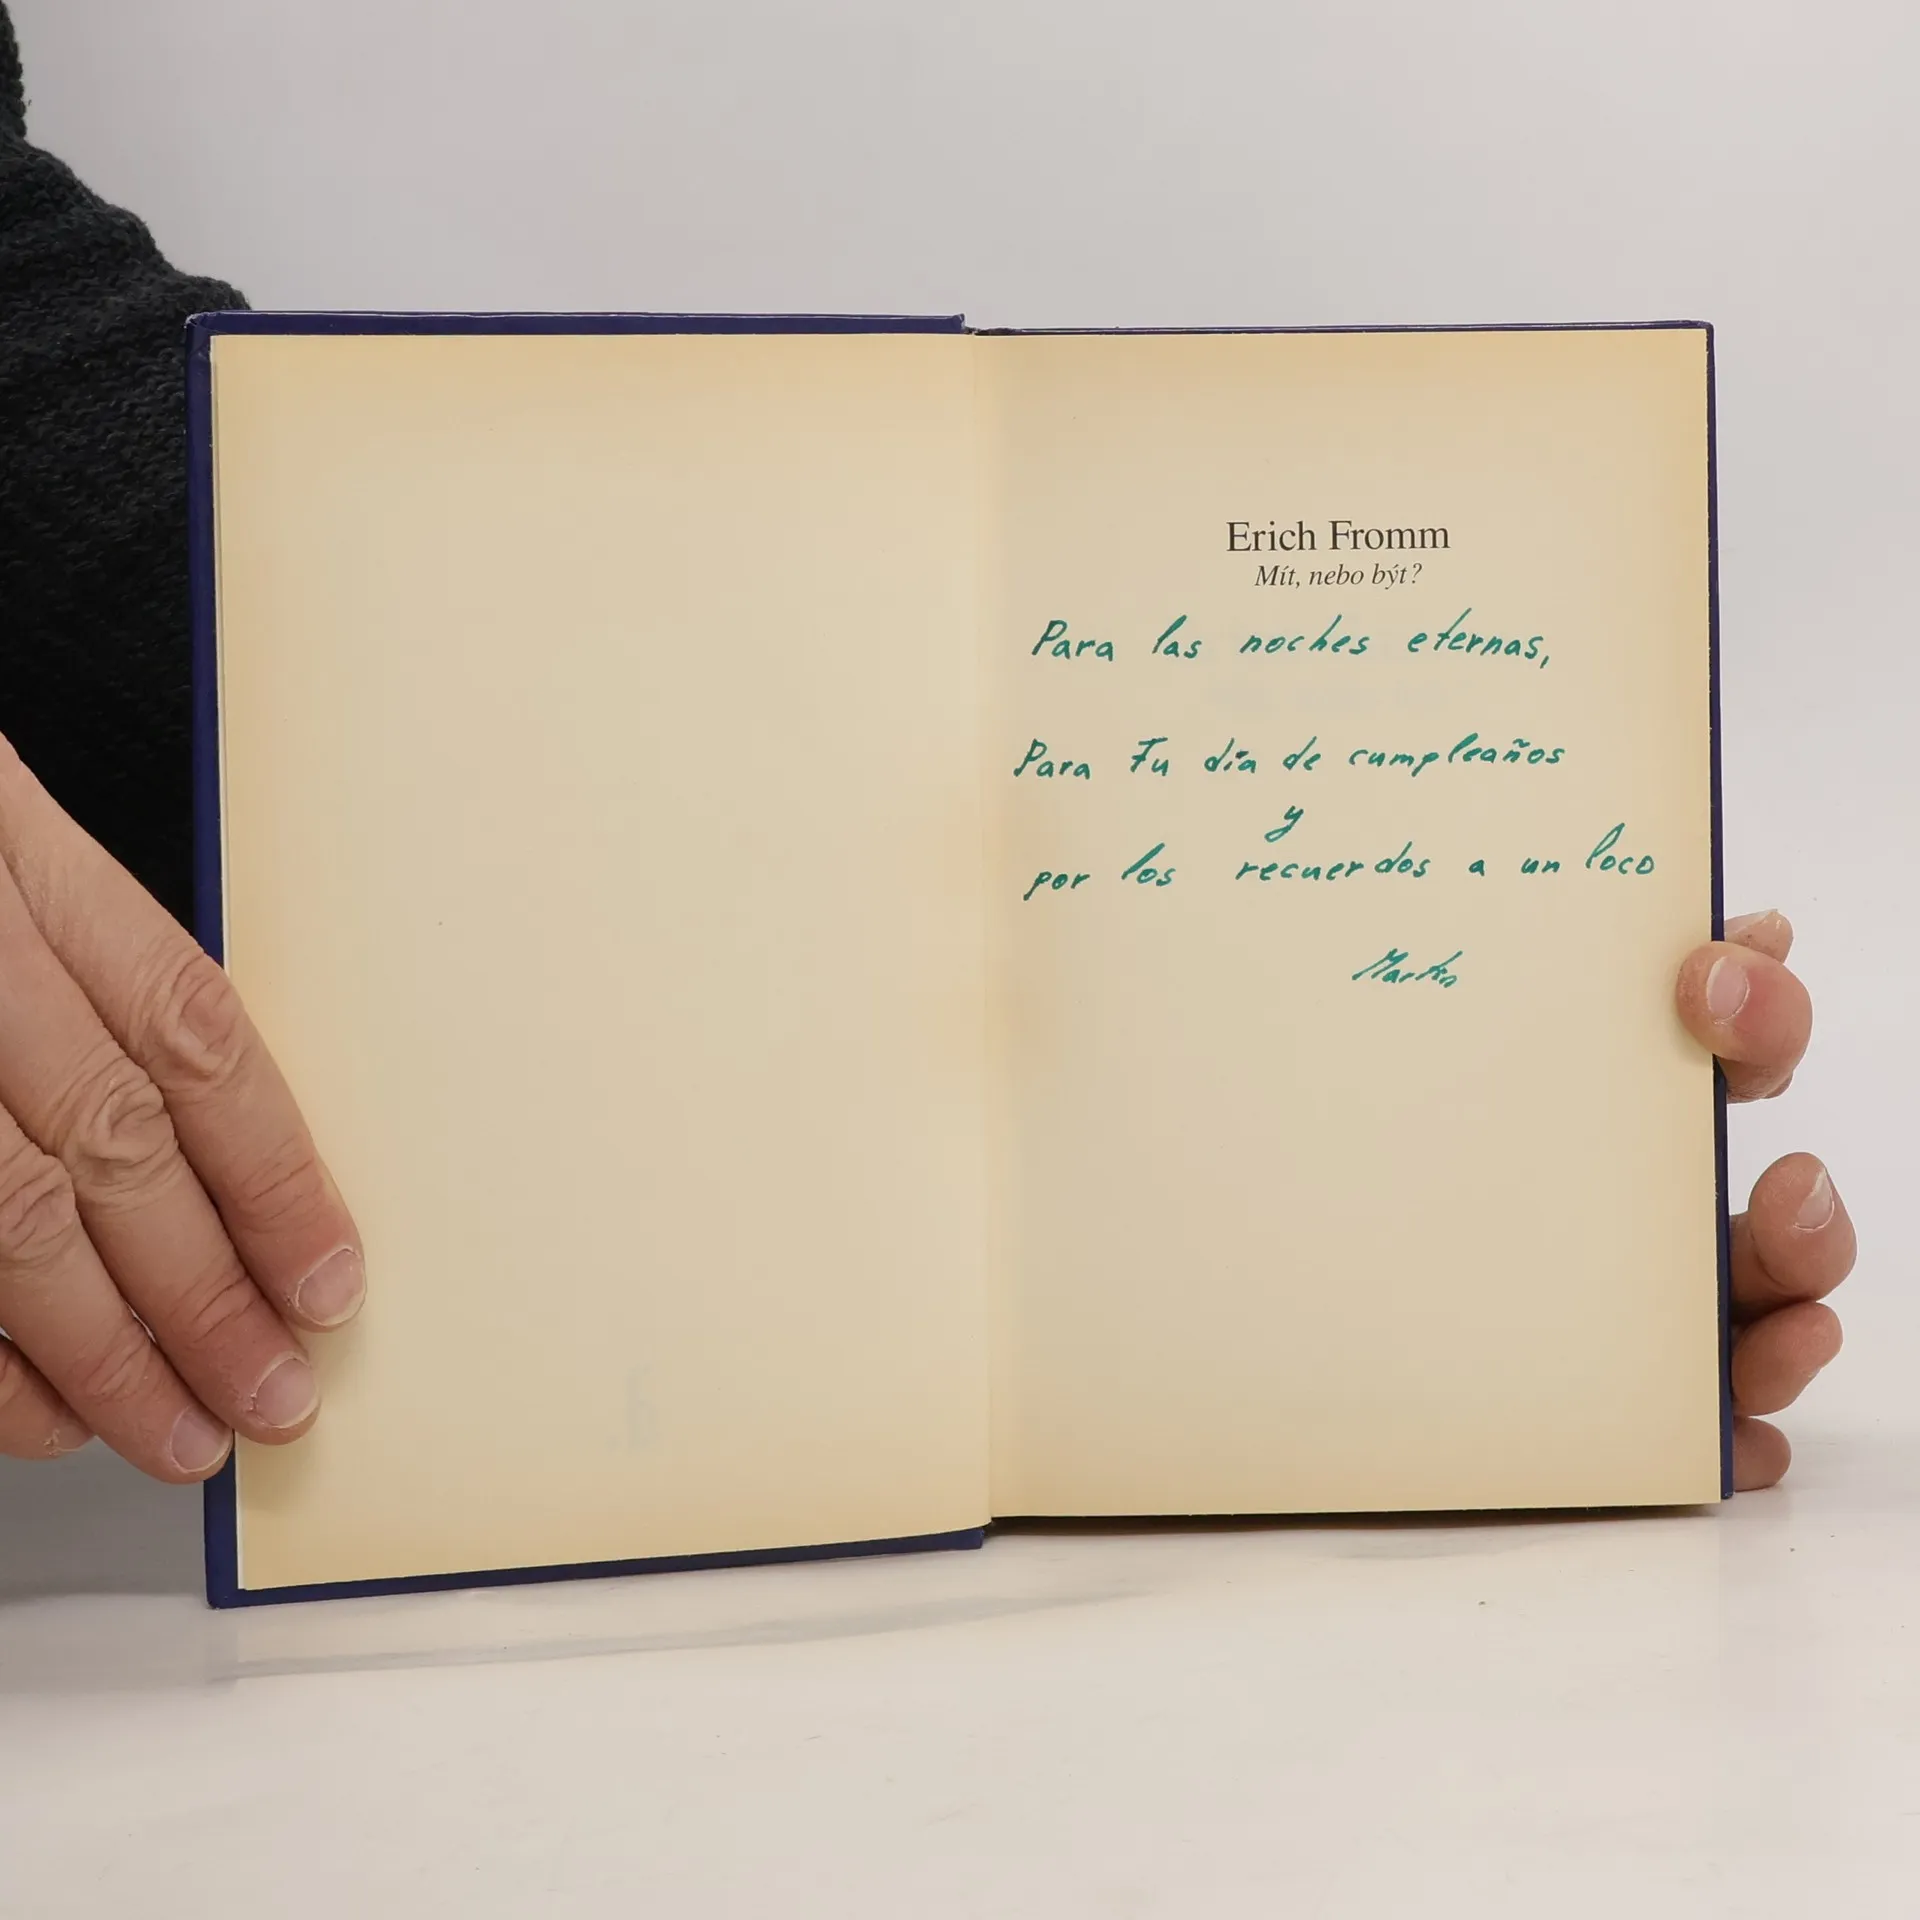 Erich Fromm
Mít, nebo být?
Para las noches eternas,
Para Tu día de cumpleaños
y
por los recuerdos a un loco
Martin